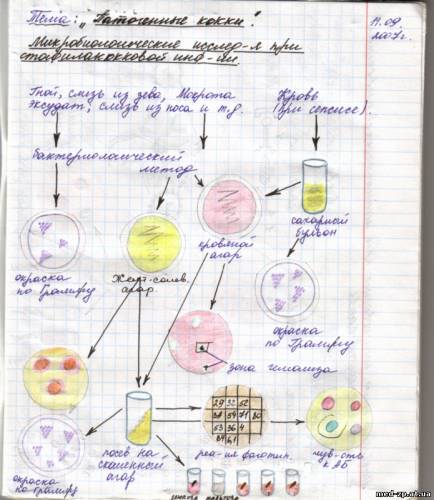 Тема: „Патогенные кокки".
11.09.
2007г.
Микробиологические исслед-я при
стафилококковой инф-ии.
Гной, слизь из зева, Мокрота
экссудат, слизь из носа и т.д.
Кровь
(при сепсисе).
бактериологический
метод
сахарный
бульон
окраска
по Граму
Желт-солев.
агар
кровяной
агар
окраска
по Граму
зона гемолиза
29 32 52
71 80
53 36 4
окраска
по Граму
посев на
скошенный
агар
реа-ия фаготип.
чув-сть
к АБ
глюкоза
med-zp.at.ua